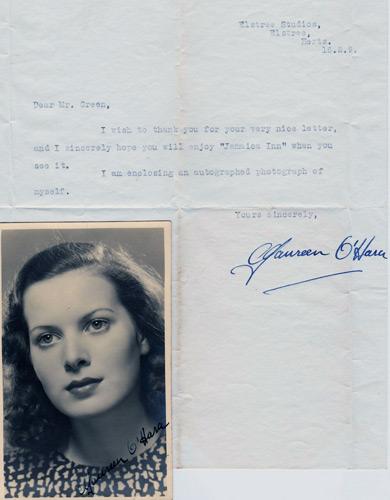 Elstree Studios,
Elstree,
Herts.
Dear Mr. Green,
I wish to thank you for your very nice letter,
and I sincerely hope you will enjoy "Jamaica Inn" when you
see it.
I am enclosing an autographed photograph of
myself.
Yours sincerely,
Maureen O'Hara
Maureen O'Hara